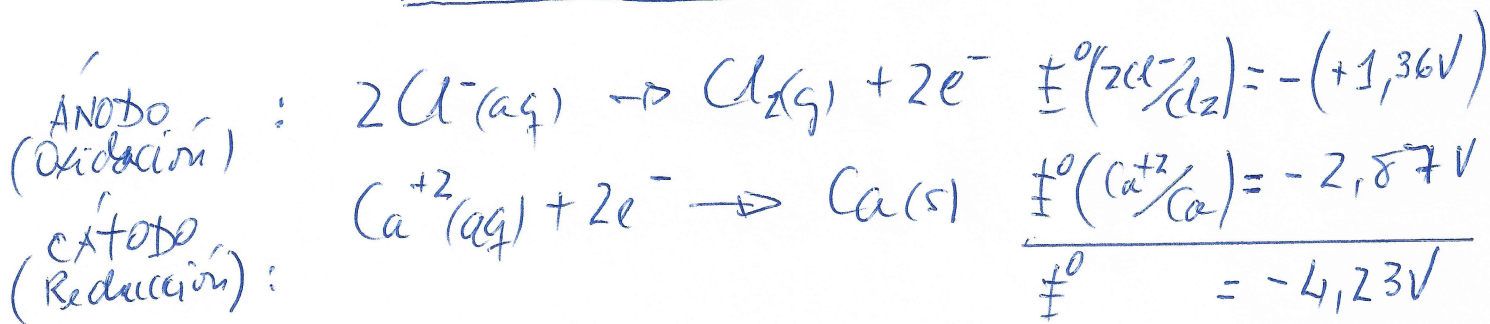 ÁNODO (Oxidación) : 2Cl⁻(aq) → Cl₂(g) + 2e⁻ E⁰(2Cl⁻/Cl₂) = -(+1,36V)
CÁTODO (Reducción) : Ca⁺²(aq) + 2e⁻ → Ca(s) E⁰(Ca⁺²/Ca) = -2,87V
E⁰ = -4,23V